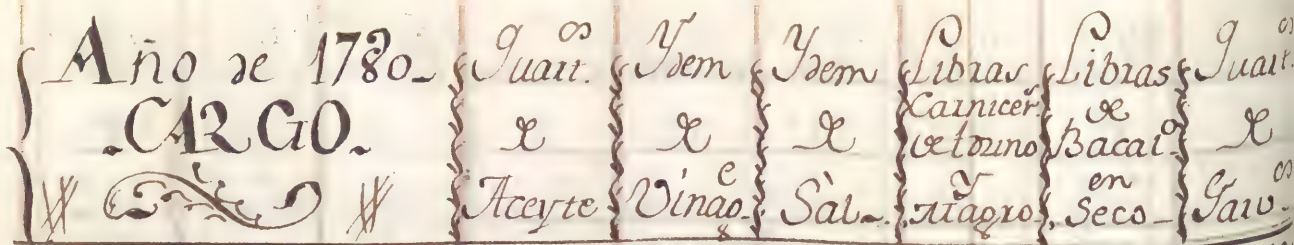 Año de 1780_
.CARGO.
Quart.os
de
Aceyte
Ydem
de
Vinag.e
Ydem
de
Sàl_
Libras
Carnicer.s
de tozino
y
magro
Libras
de
Bacal.o
en
Seco_
Quart.os
de
Garv.os